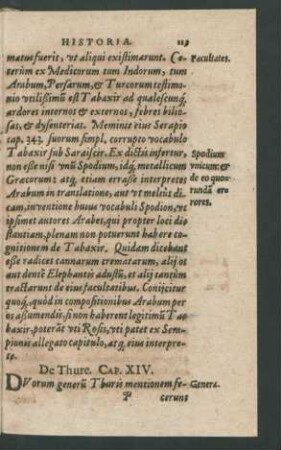 HISTORIA. 119
matus fuerit, vt aliqui existimarunt. Ce-
terùm ex Medicorum tum Indorum, tum
Arabum, Persarum, & Turcorum testimo-
nio vtilissimũ est Tabaxir ad qualescunq́,
ardores internos & externos, febres bilio-
sas, & dysenterias. Meminit eius Serapio
cap. 342. suorum simpl. corrupto vocabulo
Tabaxir sub Saraiscir. Ex dictis infertur,
non esse nisi vnũ Spodium, idq́, metallicum
Græcorum: atq́, etiam errasse interpretes
Arabum in translatione, aut vt meliùs di-
cam, in ventione huius vocabuli Spodion, vt
ipsimet autores Arabes, qui propter loci di-
stantiam, plenam non potuerunt habere co-
gnitionem de Tabaxir. Quidam dicebant
esse radices cannarum crematarum, alij os
aut dentẽ Elephantis adustũ, et alij cantùm
tractarunt de eius facultatibus. Conijcitur
quoq́, quòd in compositionibus Arabum per
os assumendis, si non haberent legitimũ Ta-
baxir, poterãt vti Rosis, vti patet ex Sera-
pionis allegato capitulo, atq́, eius interpre-
te.
Facultates.
Spodium
vnicum: &
de eo quo-
rundã er-
rores.
De Thure. CAP. XIV.
DVorum generũ Thuris mentionem fe-
Genera.
P cerunt